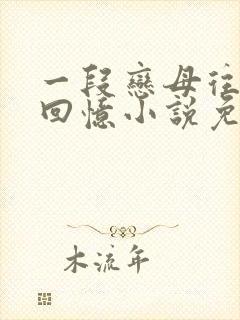 一段戀母往
回憶小說免
木流年